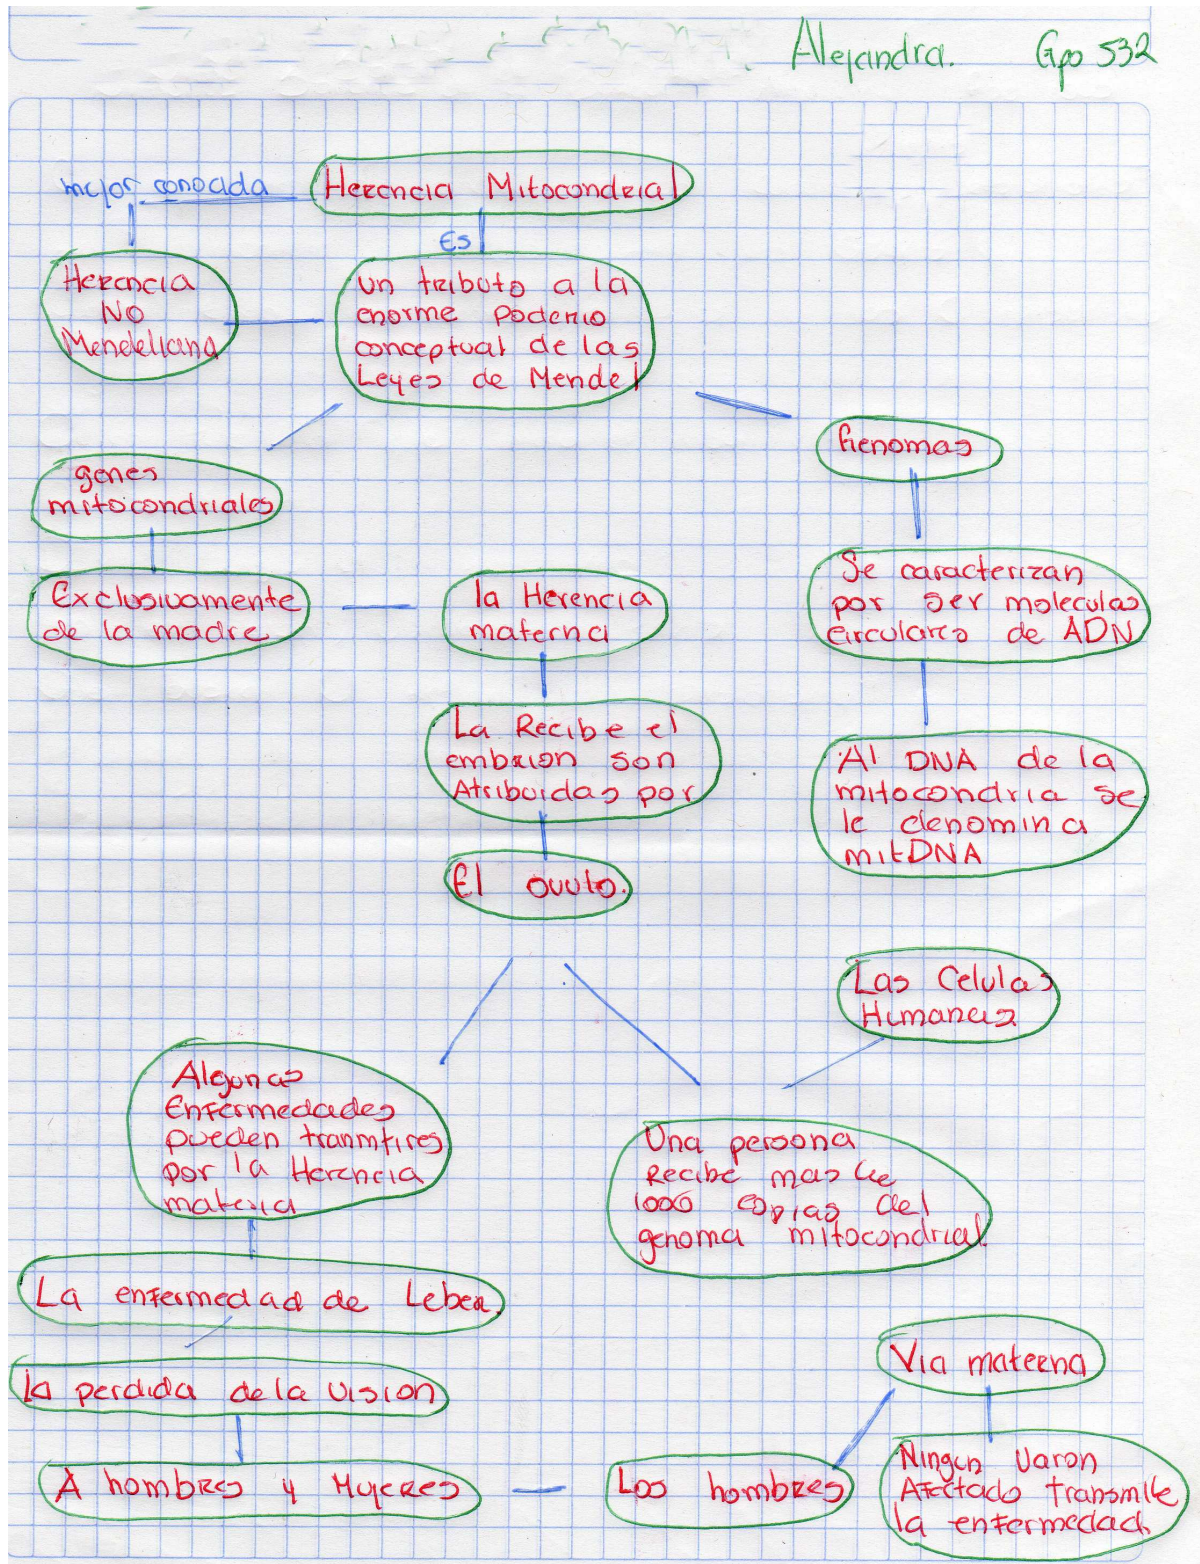 Alejandra. Gpo 532
mejor conocida
Herencia Mitocondrial
Es
Herencia
NO
Mendeliana
un tributo a la
enorme Poderio
conceptual de las
Leyes de Mendel
Genomas
genes
mitocondriales
Exclusivamente
de la madre
la Herencia
materna
Se caracterizan
por ser moleculas
circulares de ADN
La Recibe el
embrion son
Atribuidas por
Al DNA de la
mitocondria se
le denomina
mitDNA
El ovulo.
Las Celulas
Humanas
Algunas
Enfermedades
pueden tranmtires
por la Herencia
materia
Una persona
Recibe mas de
1000 copias del
genoma mitocondrial
La enfermedad de Leber.
la perdida de la vision
Via materna
A hombres y Mujeres
Los hombres
Ningun Varon
Afectado transmite
la enfermedad.